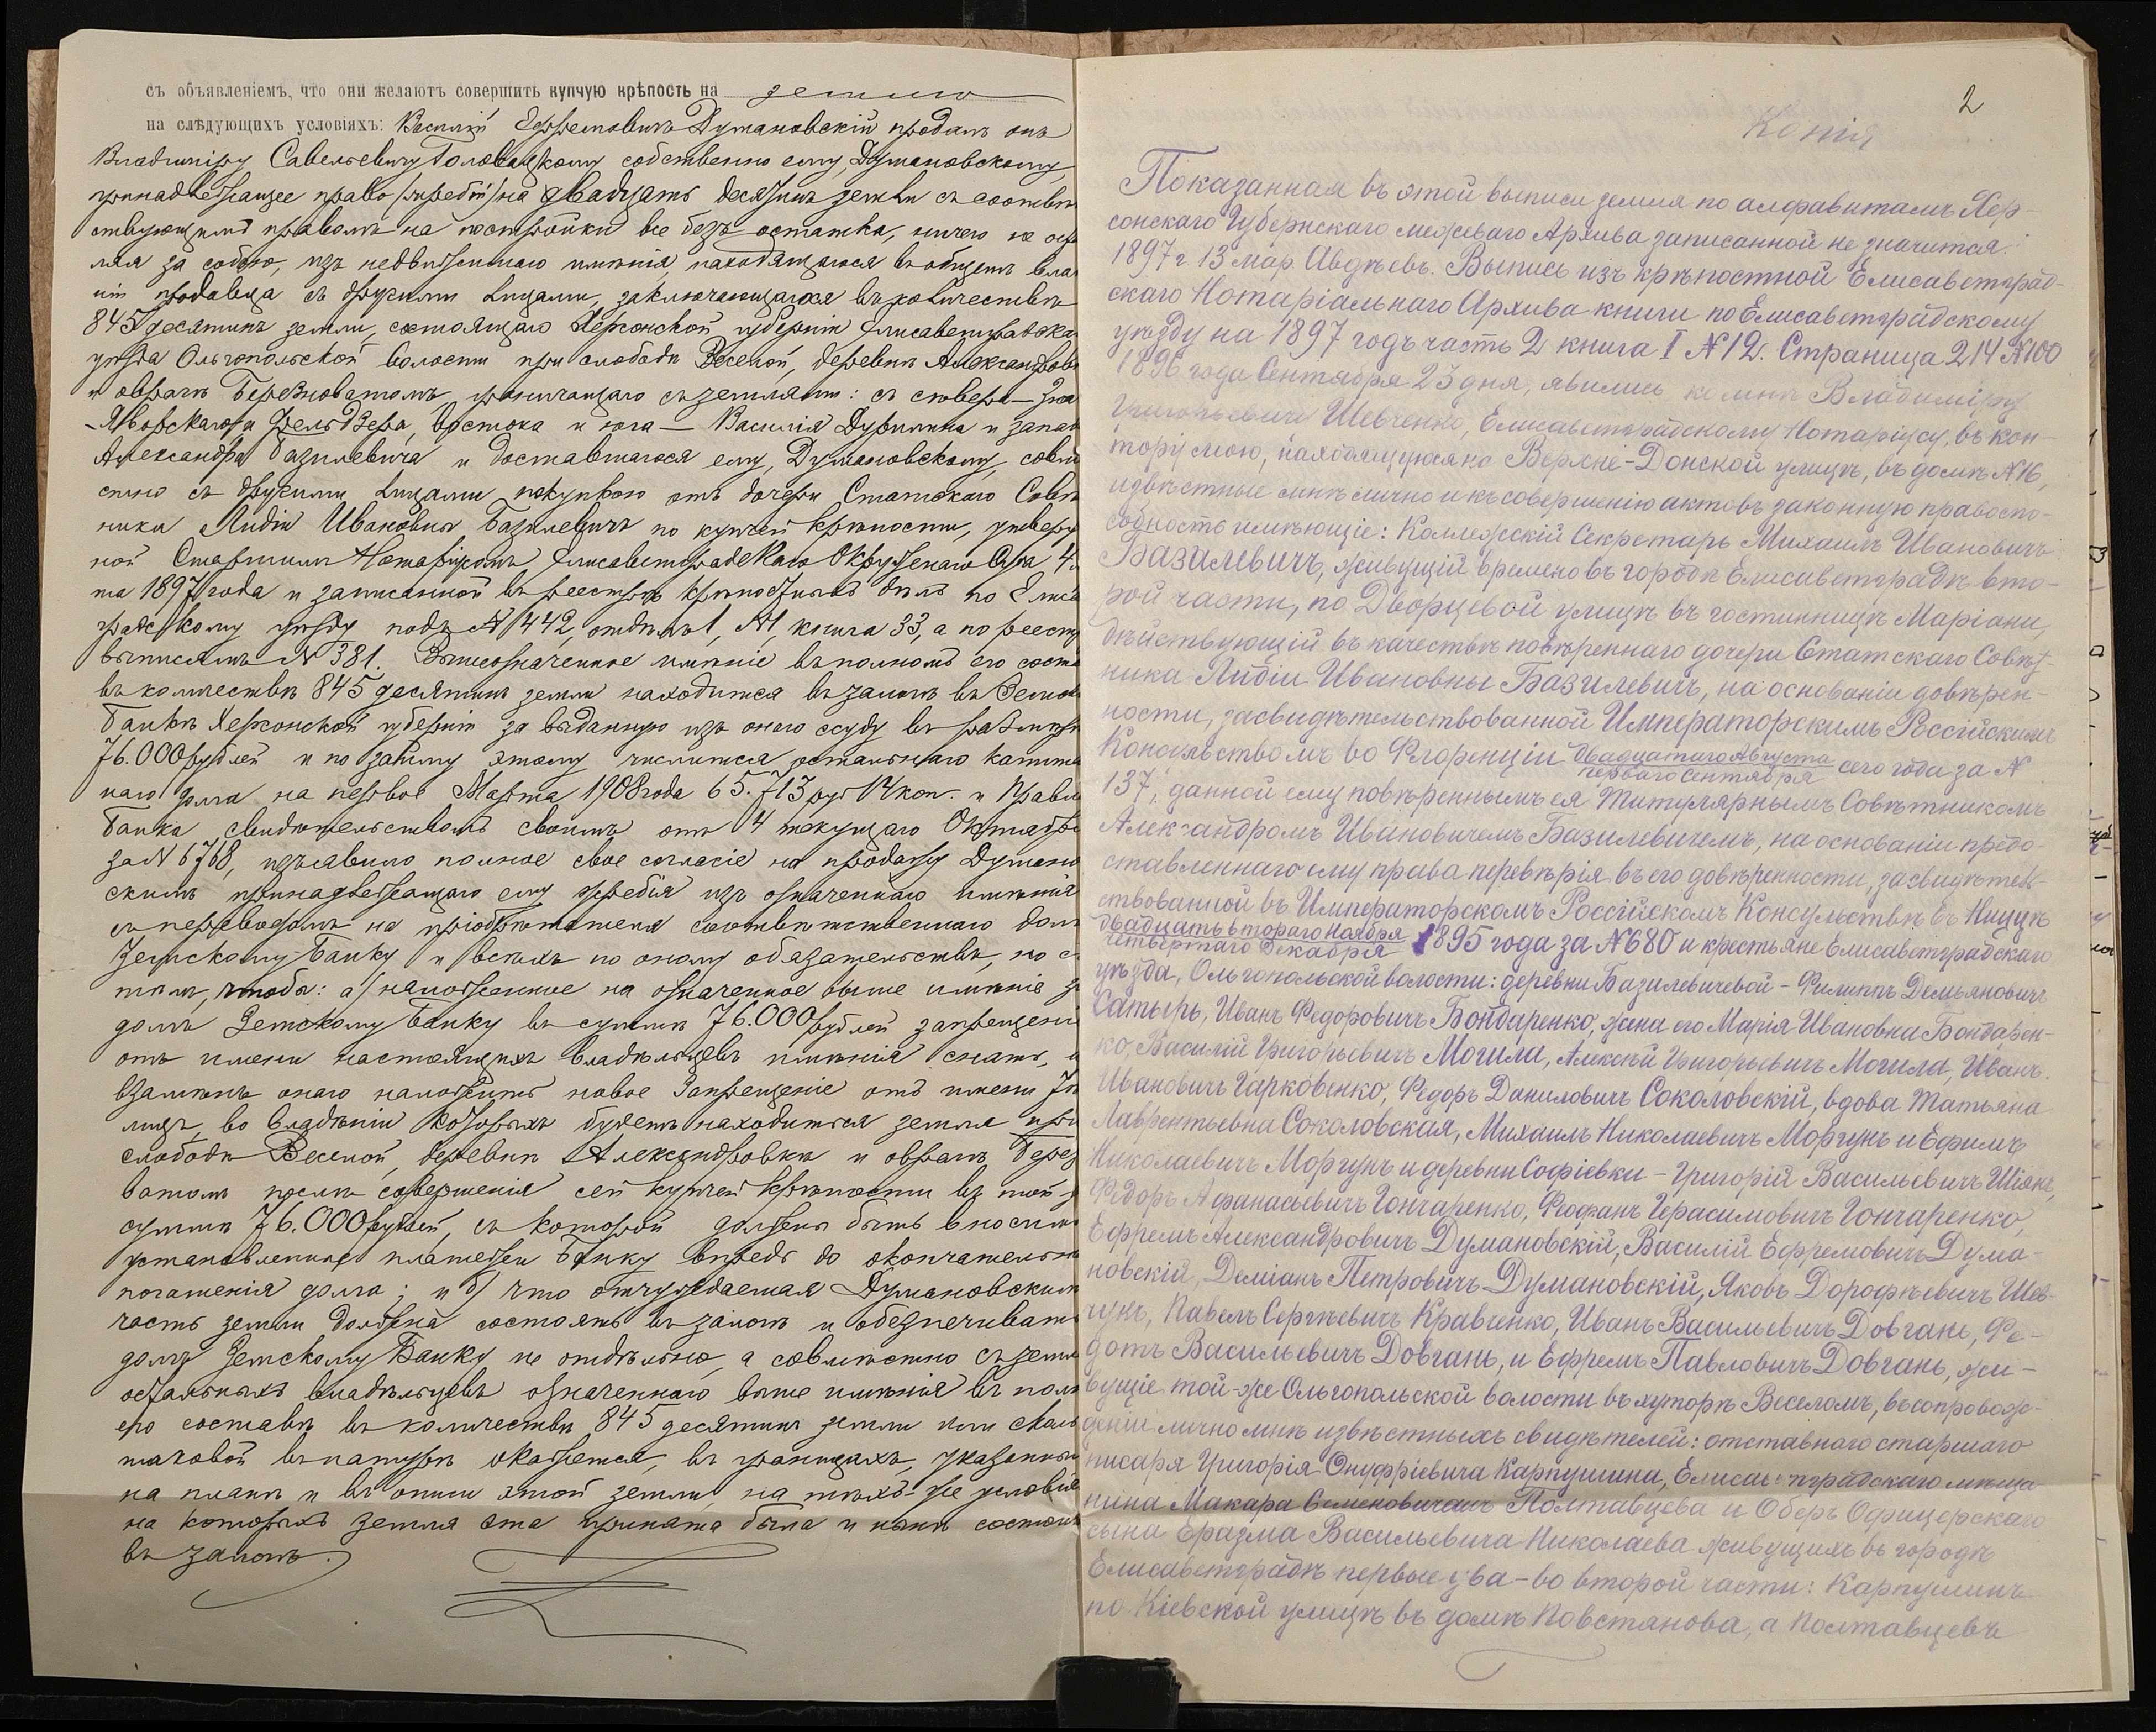 съ объявленіемъ, что они желаютъ совершить купчую крѣпость на землю
на слѣдующихъ условіяхъ: Василій Ефремовичъ Думановскій продалъ онъ
Владиміру Савельевичу Головацкому собственно ему, Думановскому,
принадлежащее право /жребій/ на двадцать десятинъ земли съ соотвѣт
ствующимъ правомъ на постройки все безъ остатка, ничего не остав
ляя за собою, изъ недвижимаго имѣнія, находящагося въ общемъ влад
ніи продавца съ другими лицами, заключающагося въ количествѣ
845 десятинъ земли, состоящаго Херсонской губерніи Елисаветградска
уѣзда Ольгопольской волости при слободѣ Веселой, деревнѣ Александровк
и оврагѣ Березноватомъ, граничащаго съ землями: съ сѣвера —
Яворскаго и Фельдзера, востока и юга — Василія Дурилина и запад
Александра Базилевича и доставшагося ему, Думановскому, совмѣ
стно съ другими лицами покупкою отъ дочери Статскаго Совѣт
ника Лидіи Ивановны Базилевичъ по купчей крѣпости, утвержд
ной Старшимъ Нотаріусомъ Елисаветградскаго Окружнаго Суда 4
та 1897 года и записанной въ реестръ крѣпостныхъ дѣлъ по Елиса
градскому уѣзду подъ № 442, отдѣлъ 1, №1, книга 33, а по реестр
выписямъ № 381. Вышеозначенное имѣніе въ полномъ его соста
въ количествѣ 845 десятинъ земли находится въ залогѣ въ Земск
Банкѣ Херсонской губерніи за выданную изъ онаго ссуду въ размѣрѣ
76.000 рублей и по займу этому числится остальнаго капита
наго долга на первое Марта 1908 года 65.713 руб 14 коп. и Правле
Банка, свидѣтельствомъ своимъ отъ 4 текущаго Октября
за № 6768, изъявило полное свое согласіе на продажу Думано
скимъ принадлежащаго ему жребія изъ означеннаго имѣнія
съ переводомъ на пріобрѣтателя соотвѣтственнаго долг
Земскому Банку и всѣхъ по оному обязательствъ, но с
тѣмъ, чтобы: а) наложенное на означенное выше имѣніе з
долгъ Земскому Банку въ суммѣ 76.000 рублей запрещені
отъ имени настоящихъ владѣльцевъ имѣнія снять, а
взамѣнъ онаго наложить новое запрещеніе отъ имени тѣ
лицъ, во владѣніи которыхъ будетъ находиться земля при
слободѣ Веселой, деревнѣ Александровкѣ и оврагѣ Берез
ватомъ послѣ совершенія сей купчей крѣпости въ той-ж
суммѣ 76.000 рублей, съ которой должны быть вносимы
установленные платежи Банку впредь до окончательн
погашенія долга; и б) что отчуждаемая Думановскимъ
часть земли должна состоять въ залогѣ и обезпечивать
долгъ Земскому Банку не отдѣльно, а совмѣстно съ земл
остальныхъ владѣльцевъ означеннаго выше имѣнія въ полн
его составѣ въ количествѣ 845 десятинъ земли или сколь
таковой въ натурѣ окажется, въ границахъ, указанны
на планѣ и въ описи этой земли, на тѣхъ-же условія
на которыхъ земля эта принята была и нынѣ состоит
въ залогѣ.
2
Копія
Показанная въ этой выписи земля по алфавитамъ Хер-
сонскаго Губернскаго межеваго Архива записанной не значится.
1897 г. 13 мар. Авдѣевъ. Выпись изъ крѣпостной Елисаветград-
скаго Нотаріальнаго Архива книги по Елисаветградскому
уѣзду на 1897 годъ часть 2 книга I № 12. Страница 214 № 100
1896 года Сентября 23 дня, явились ко мнѣ Владиміру
Григорьевичу Шевченко, Елисаветградскому Нотаріусу, въ кон-
тору мою, находящуюся на Верхне-Донской улицѣ, въ домѣ № 16,
извѣстные мнѣ лично и къ совершенію актовъ законную правоспо-
собность имѣющіе: Коллежскій Секретарь Михаилъ Ивановичъ
Базилевичъ, живущій временно въ городѣ Елисаветградѣ вто-
рой части, по Дворцовой улицѣ въ гостинницѣ Маріани,
дѣйствующій въ качествѣ повѣреннаго дочери Статскаго Совѣт-
ника Лидіи Ивановны Базилевичъ, на основаніи довѣрен-
ности, засвидѣтельствованной Императорскимъ Россійскимъ
Консульствомъ во Флоренціи двадцатаго Августа / перваго Сентября сего года за №
137, данной ему повѣреннымъ ея Титулярнымъ Совѣтникомъ
Александромъ Ивановичемъ Базилевичемъ, на основаніи предо-
ставленнаго ему права перевѣрія въ его довѣренности, засвидѣтель-
ствованной въ Императорскомъ Россійскомъ Консульствѣ въ Ниццѣ
двадцать втораго Ноября / четвертаго Декабря 1895 года за № 680 и крестьяне Елисаветградскаго
уѣзда, Ольгопольской волости: деревни Базилевичевой – Филиппъ Демьяновичъ
Сатырь, Иванъ Федоровичъ Бондаренко, жена его Марія Ивановна Бондарен-
ко, Василій Григорьевичъ Могила, Алексѣй Григорьевичъ Могила, Иванъ
Ивановичъ Гарковенко, Федоръ Даниловичъ Соколовскій, вдова Татьяна
Лаврентьевна Соколовская, Михаилъ Николаевичъ Моргунъ и Ефимъ
Николаевичъ Моргунъ и деревни Софіевки – Григорій Васильевичъ Шіянъ,
Федоръ Афанасьевичъ Гончаренко, Феофанъ Герасимовичъ Гончаренко,
Ефремъ Александровичъ Думановскій, Василій Ефремовичъ Дума-
новскій, Деміанъ Петровичъ Думановскій, Яковъ Дорофѣевичъ Шев-
чукъ, Павелъ Сергѣевичъ Кравченко, Иванъ Васильевичъ Довгань, Фе-
дотъ Васильевичъ Довгань, и Ефремъ Павловичъ Довгань, жи-
вущіе той-же Ольгопольской волости въ хуторѣ Веселомъ, въ сопровож-
деніи лично мнѣ извѣстныхъ свидѣтелей: отставнаго старшаго
писаря Григорія Онуфріевича Карпушина, Елисаветградскаго мѣща
нина Макара Семеновичемъ Полтавцева и Оберъ Офицерскаго
сына Еразма Васильевича Николаева живущихъ въ городѣ
Елисаветградѣ первые два – во второй части: Карпушинъ
по Кіевской улицѣ въ домѣ Повстянова, а Полтавцевъ